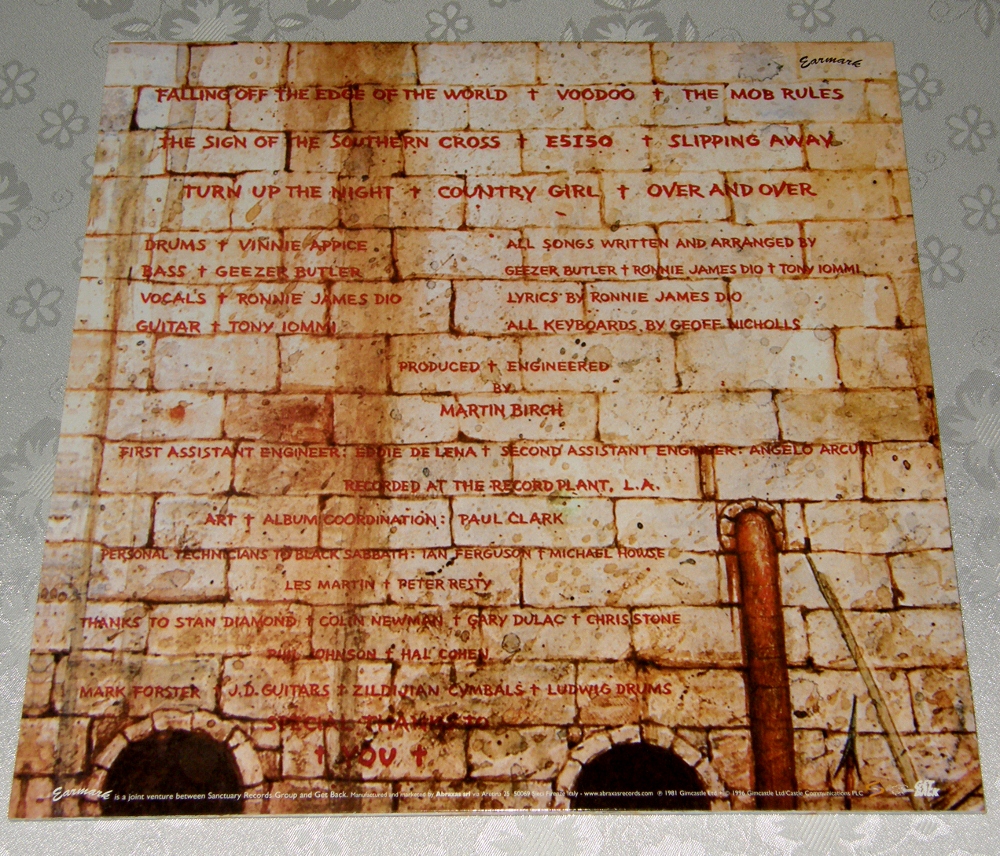 Earmark
FALLING OFF THE EDGE OF THE WORLD † VOODOO † THE MOB RULES
THE SIGN OF THE SOUTHERN CROSS † E5150 † SLIPPING AWAY
TURN UP THE NIGHT † COUNTRY GIRL † OVER AND OVER
DRUMS † VINNIE APPICE
BASS † GEEZER BUTLER
VOCALS † RONNIE JAMES DIO
GUITAR † TONY IOMMI
ALL SONGS WRITTEN AND ARRANGED BY
GEEZER BUTLER † RONNIE JAMES DIO † TONY IOMMI
LYRICS BY RONNIE JAMES DIO
ALL KEYBOARDS BY GEOFF NICHOLLS
PRODUCED † ENGINEERED
BY
MARTIN BIRCH
FIRST ASSISTANT ENGINEER: EDDIE DE LENA † SECOND ASSISTANT ENGINEER: ANGELO ARCURI
RECORDED AT THE RECORD PLANT, L.A.
ART † ALBUM COORDINATION: PAUL CLARK
PERSONAL TECHNICIANS TO BLACK SABBATH: IAN FERGUSON † MICHAEL HOWSE
LES MARTIN † PETER RESTY
THANKS TO STAN DIAMOND † COLIN NEWMAN † GARY DULAC † CHRIS STONE
PHIL JOHNSON † HAL COHEN
MARK FORSTER † J.D. GUITARS † ZILDIJIAN CYMBALS † LUDWIG DRUMS
SPECIAL THANKS TO
† YOU †
Earmark is a joint venture between Sanctuary Records Group and Get Back. Manufactured and marketed by Abraxas srl via Aretina 25 - 50069 Sieci Firenze Italy - www.abraxasrecords.com ℗ 1981 Gimcastle Ltd. © 1996 Gimcastle Ltd/Castle Communications PLC
GET BACK